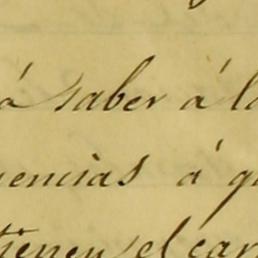 á saber á la
uencias á qu
tienen el car